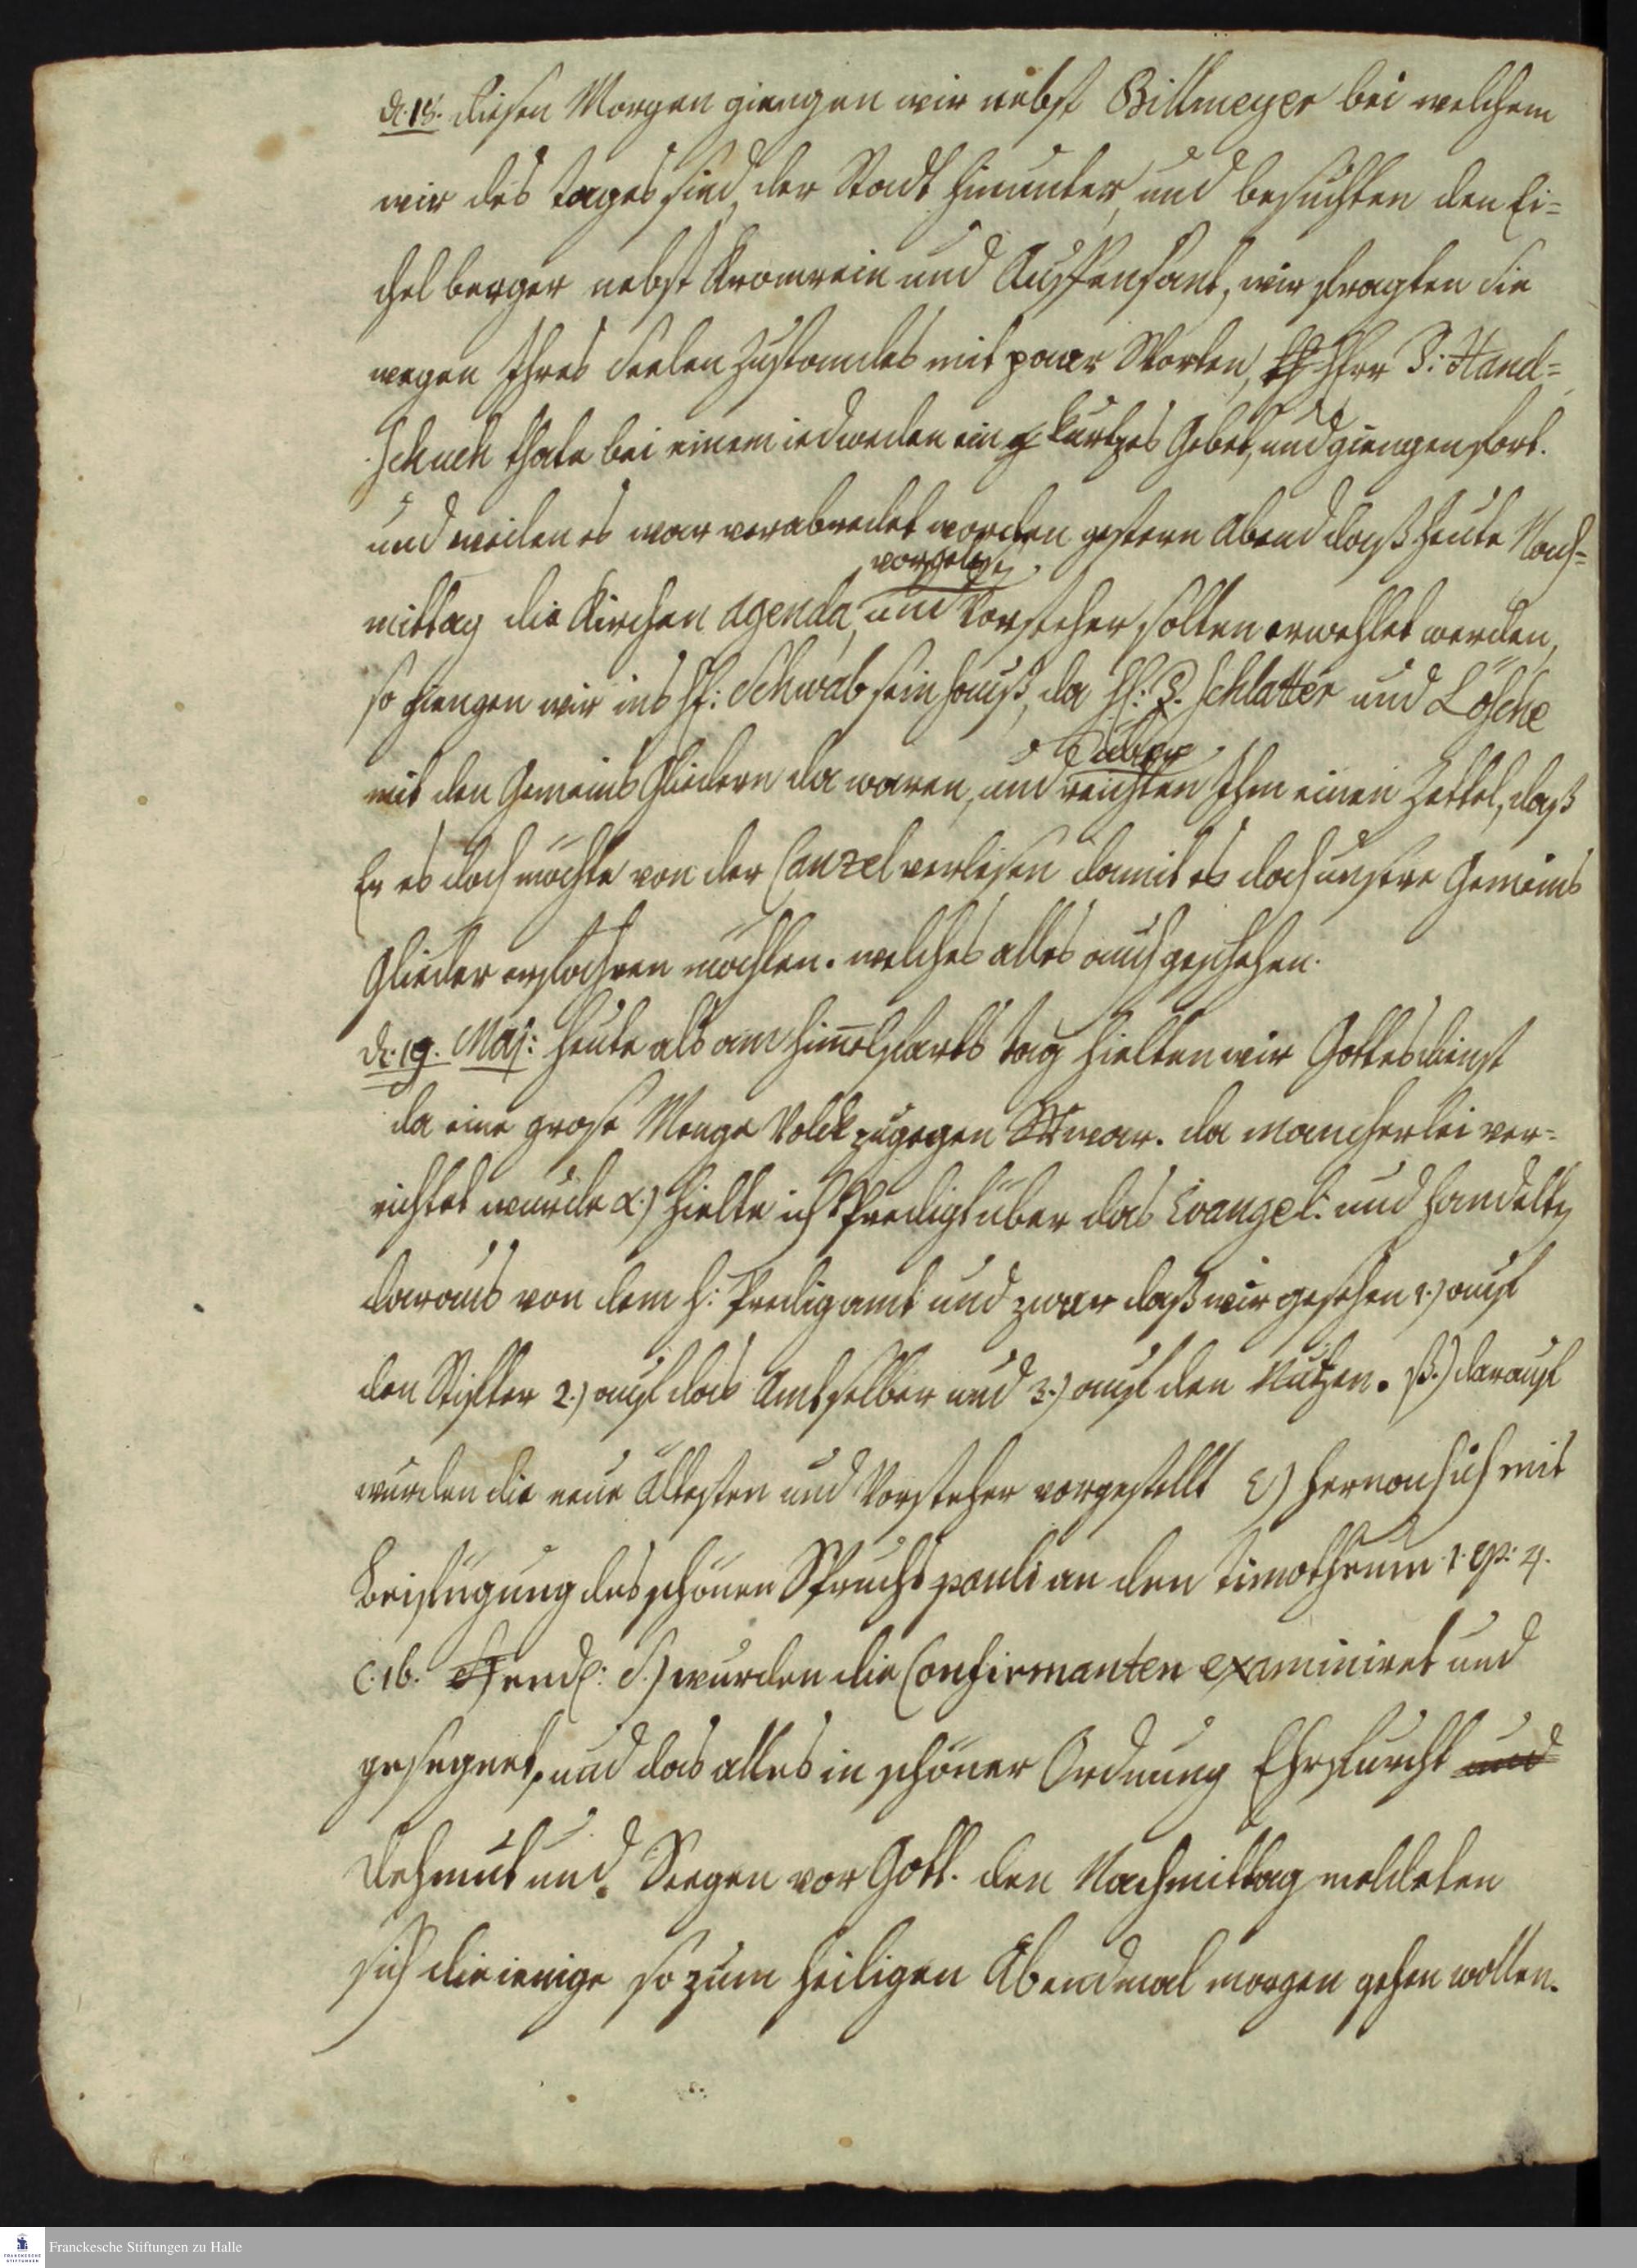 d. 18. diesen Morgen giengen wir nebst Billmeyer bei welchem
wir des tages sind, der Stadt hinunter, und besuchten den Ei=
chelberger nebst Kromrein und Auffensand, wir fragten sie
wegen Ihres Seelen Zustandes mit paar Worten, Hherr P: Hand=
schuch thate bei einem iedweden ein kurtzes Gebet, und giengen fort.
und weilen es war verabredet worden gestern Abend daß heute Nach=
vorgelesen
mittag die Kirchen agenda, und Vorsteher solten erwehlet werden,
so giengen wir ins Hh: Schwab sein hauß, da Hh: P. Schlatter und Lösche
über
mit den Gemeins Gliedern da waren, und reichten Ihm einen Zettel, daß
Er es doch möchte von der Canzel verlesen damit es doch unsere Gemeins
Glieder erfahren möchten. welches alles auch geschehen.
d. 19. Maj: heute als am himelfarts tag hielten wir Gottesdienst
da eine grose Menge Volck zugegen war. da mancherlei ver=
richtet wurde α.) hielte ich Predigt über das Evangel: und handelte
daraus von dem h: Predigamt und zwar daß wir gesehen 1.) auf
den Stiffter 2.) auf das Amt selber und 3.) auf den Nutzen. β.) darauf
wurden die neue Ältesten und Vorsteher vorgestellt hernach ich mit
Beifügung des schönen Spruchs pauli an den timotheum 1. ep: 4.
c. 16. endl: δ.) wurden die Confirmanten examiniret und
gesegnet, und das alles in schöner Ordnung Ehrfurcht und
Dehmut und Seegen vor Gott. den Nachmittag meldeten
sich dieienige so zum heiligen Abendmal morgen gehen wollen.
Franckesche Stiftungen zu Halle
FRANCKESCHE
STIFTUNGEN